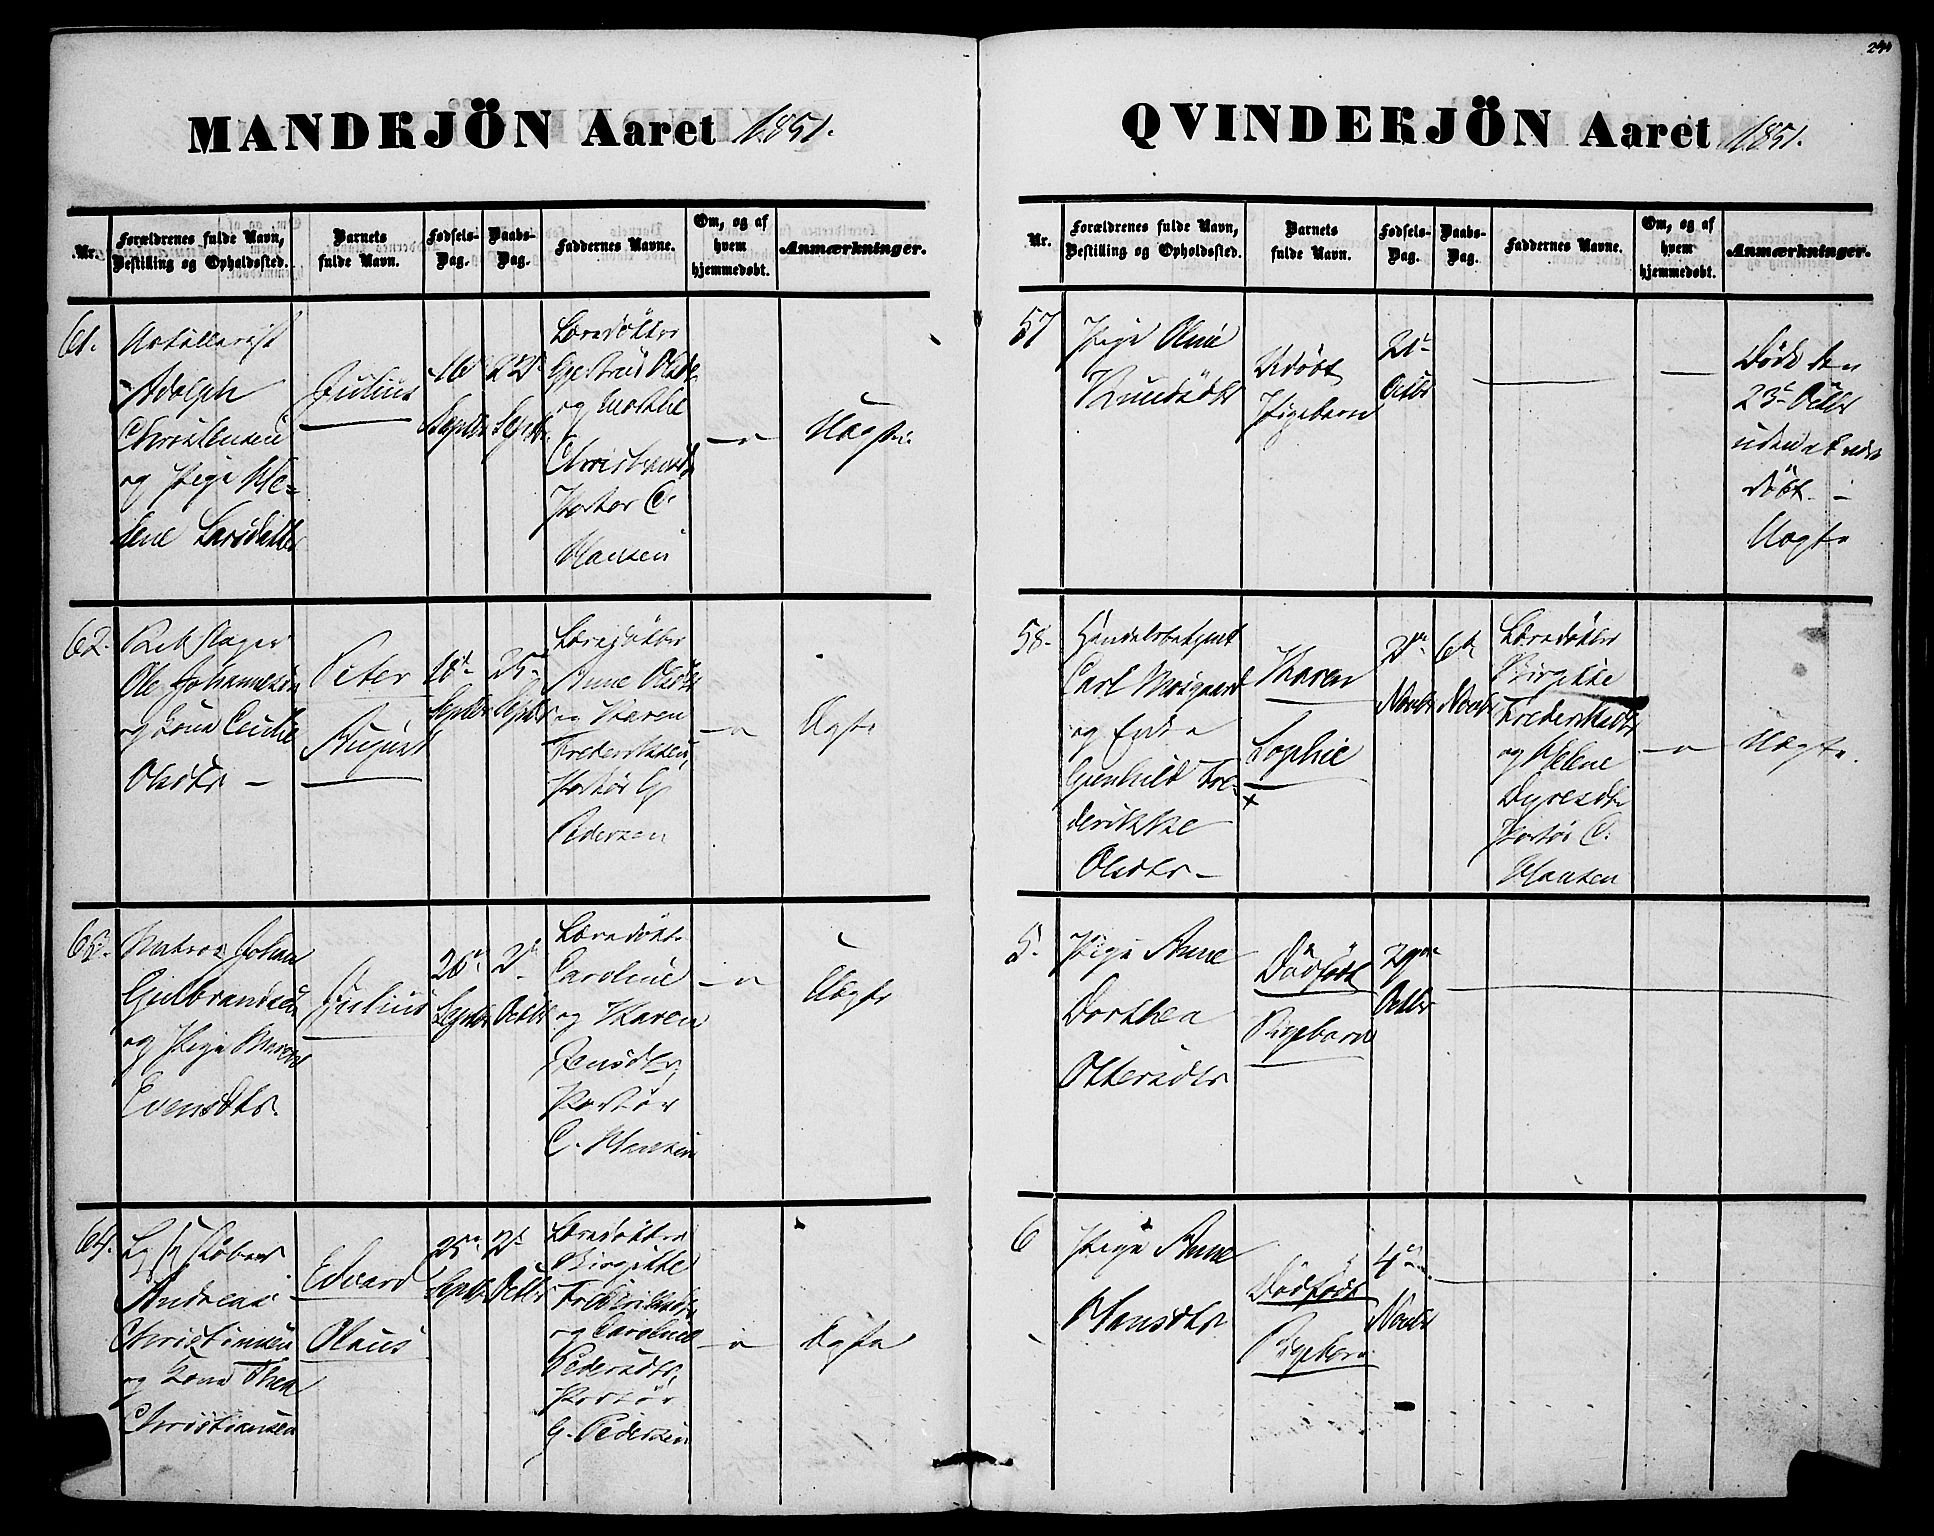 244
MANDKJÖN Aaret 1851.
Nr.
Forældrenes fulde Navn,
Bestilling og Opholdssted.
Barnets
fulde Navn.
Fødsels-
Dag.
Daabs-
Dag.
Faddernes Navne.
Om, og af
hvem
hjemmedøbt.
Anmærkninger.
61.
Artillerist
Adolph
Christensen
og Pige He-
lene Larsdatter
Julius
16de
Septbr
22de
Septbr.
Læredøttre
Gjertrud Olsdr.
og Mathil
Christensdr
Portør C.
Hansen
Uægte.
62.
Rebslager
Ole Johannesen
og Kone Cecilie
Olsdtr. –
Peter
August
18de
Septbr
25de
Septbr
Læredøttre
Anne Olsdtr
og Karen
Frederiksen,
Portør G
Pedersen
Ægte
63.
Matros Johan
Gulbrandsen
og Pige Maren
Evensdtr.
Julius
26de
Septbr
2de
Octbr
Læredøtt.
Caroline
og Karen
Jensdtr,
Portør
C. Hansen
Uægte
64.
Andreas
Christensen
og Kone Thea
Christiansen
Edvard
Olaus
25de
Septbr
2de
Octbr
Læredøttre
Birgitte
Frederiksdtr
og Caroline
Pedersdtr,
Portør
G. Pedersen
Ægte
QVINDERJÖN Aaret 1851.
Nr.
Forældrenes fulde Navn,
Bestilling og Opholdssted.
Barnets
fulde Navn.
Fødsels-
Dag.
Daabs-
Dag.
Faddernes Navne.
Om, og af
hvem
hjemmedøbt.
Anmærkninger.
57
Pige Oline
Knudsdtr
Udøbt
Pigebarn
21de
Octbr
Døde den
23de Octbr
uden at være
døbt. –
Uægte
58.
Handelsbetjent
Carl Mosgaard
og Enke
Gunhild Fre-
derikke
Olsdtr. –
Karen
Sophie
×
2de
Novbr
6te
Novbr
Læredøttre
Birgitte
Frederiksdtr
og Helene
Dyresdtr
Portør C.
Hansen
Uægte.
5.
Pige Anne
Dorthea
Ottersdtr
Dødfødt
Pigebarn
29de
Octbr
6
Pige Anne
Hansdtr
Dødfødt
Pigebarn
4de
Novbr